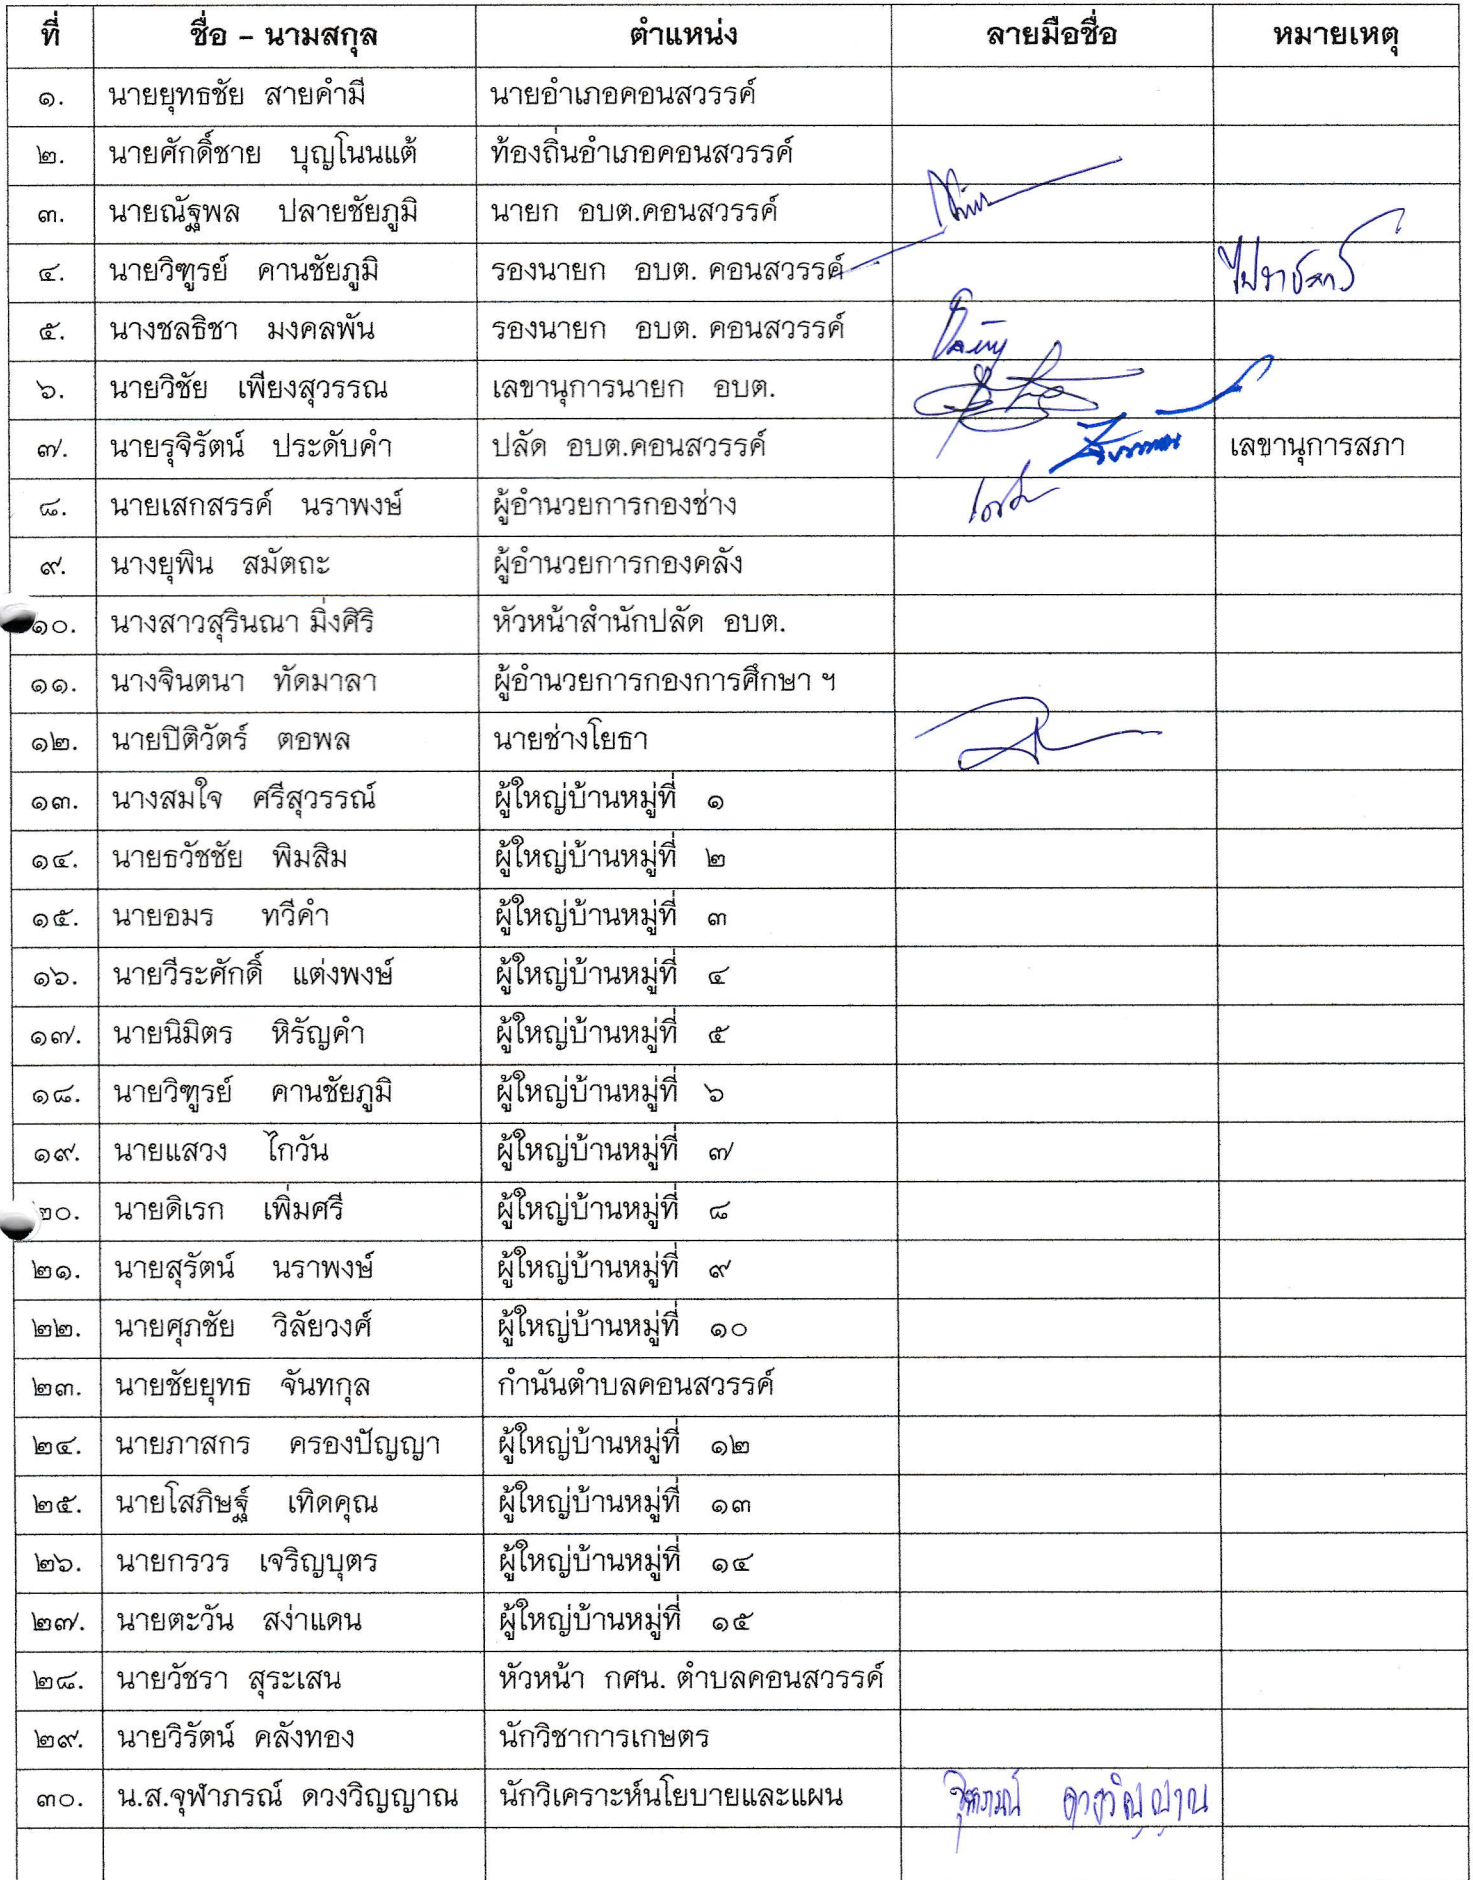 ที่ ชื่อ – นามสกุล ตำแหน่ง ลายมือชื่อ หมายเหตุ
๑. นายยุทธชัย สายคำมี นายอำเภอคอนสวรรค์
๒. นายศักดิ์ชาย บุญโนนแต้ ท้องถิ่นอำเภอคอนสวรรค์
๓. นายณัฐพล ปลายชัยภูมิ นายก อบต.คอนสวรรค์
๔. นายวิฑูรย์ คานชัยภูมิ รองนายก อบต. คอนสวรรค์ ไปราชการ
๕. นางชลธิชา มงคลพัน รองนายก อบต. คอนสวรรค์
๖. นายวิชัย เพียงสุวรรณ เลขานุการนายก อบต.
๗. นายรุจิรัตน์ ประดับคำ ปลัด อบต.คอนสวรรค์ เลขานุการสภา
๘. นายเสกสรรค์ นราพงษ์ ผู้อำนวยการกองช่าง
๙. นางยุพิน สมัตถะ ผู้อำนวยการกองคลัง
๑๐. นางสาวสุรินณา มิ่งศิริ หัวหน้าสำนักปลัด อบต.
๑๑. นางจินตนา ทัดมาลา ผู้อำนวยการกองการศึกษา ฯ
๑๒. นายปิติวัตร์ ตอพล นายช่างโยธา
๑๓. นางสมใจ ศรีสุวรรณ์ ผู้ใหญ่บ้านหมู่ที่ ๑
๑๔. นายธวัชชัย พิมสิม ผู้ใหญ่บ้านหมู่ที่ ๒
๑๕. นายอมร ทวีคำ ผู้ใหญ่บ้านหมู่ที่ ๓
๑๖. นายวีระศักดิ์ แต่งพงษ์ ผู้ใหญ่บ้านหมู่ที่ ๔
๑๗. นายนิมิตร หิรัญคำ ผู้ใหญ่บ้านหมู่ที่ ๕
๑๘. นายวิฑูรย์ คานชัยภูมิ ผู้ใหญ่บ้านหมู่ที่ ๖
๑๙. นายแสวง ไกวัน ผู้ใหญ่บ้านหมู่ที่ ๗
๒๐. นายดิเรก เพิ่มศรี ผู้ใหญ่บ้านหมู่ที่ ๘
๒๑. นายสุรัตน์ นราพงษ์ ผู้ใหญ่บ้านหมู่ที่ ๙
๒๒. นายศุภชัย วิลัยวงศ์ ผู้ใหญ่บ้านหมู่ที่ ๑๐
๒๓. นายชัยยุทธ จันทกุล กำนันตำบลคอนสวรรค์
๒๔. นายภาสกร ครองปัญญา ผู้ใหญ่บ้านหมู่ที่ ๑๒
๒๕. นายโสภิษฐ์ เทิดคุณ ผู้ใหญ่บ้านหมู่ที่ ๑๓
๒๖. นายกรวร เจริญบุตร ผู้ใหญ่บ้านหมู่ที่ ๑๔
๒๗. นายตะวัน สง่าแดน ผู้ใหญ่บ้านหมู่ที่ ๑๕
๒๘. นายวัชรา สุระเสน หัวหน้า กศน. ตำบลคอนสวรรค์
๒๙. นายวิรัตน์ คลังทอง นักวิชาการเกษตร
๓๐. น.ส.จุฬาภรณ์ ดวงวิญญาณ นักวิเคราะห์นโยบายและแผน จุฬาภรณ์ ดวงวิญญาณ